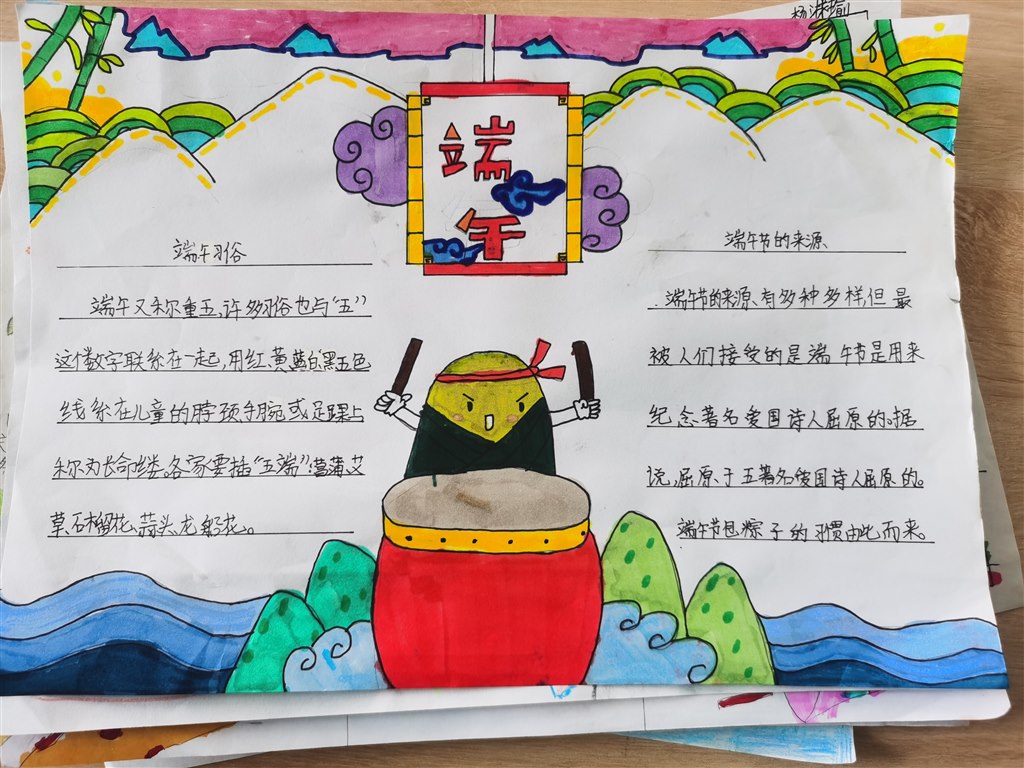 端午
端午习俗
端午又称重五,许多习俗也与“五”
这个数字联系在一起,用红黄蓝白黑五色
线系在儿童的脖颈手腕或足踝上
称为长命缕。各家要插“五端”:菖蒲、艾
草、石榴花、蒜头、龙船花。
端午节的来源
端午节的来源有多种多样,但最
被人们接受的是端午节是用来
纪念著名爱国诗人屈原的。据
说,屈原于五著名爱国诗人屈原的。
端午节包粽子的习惯由此而来。